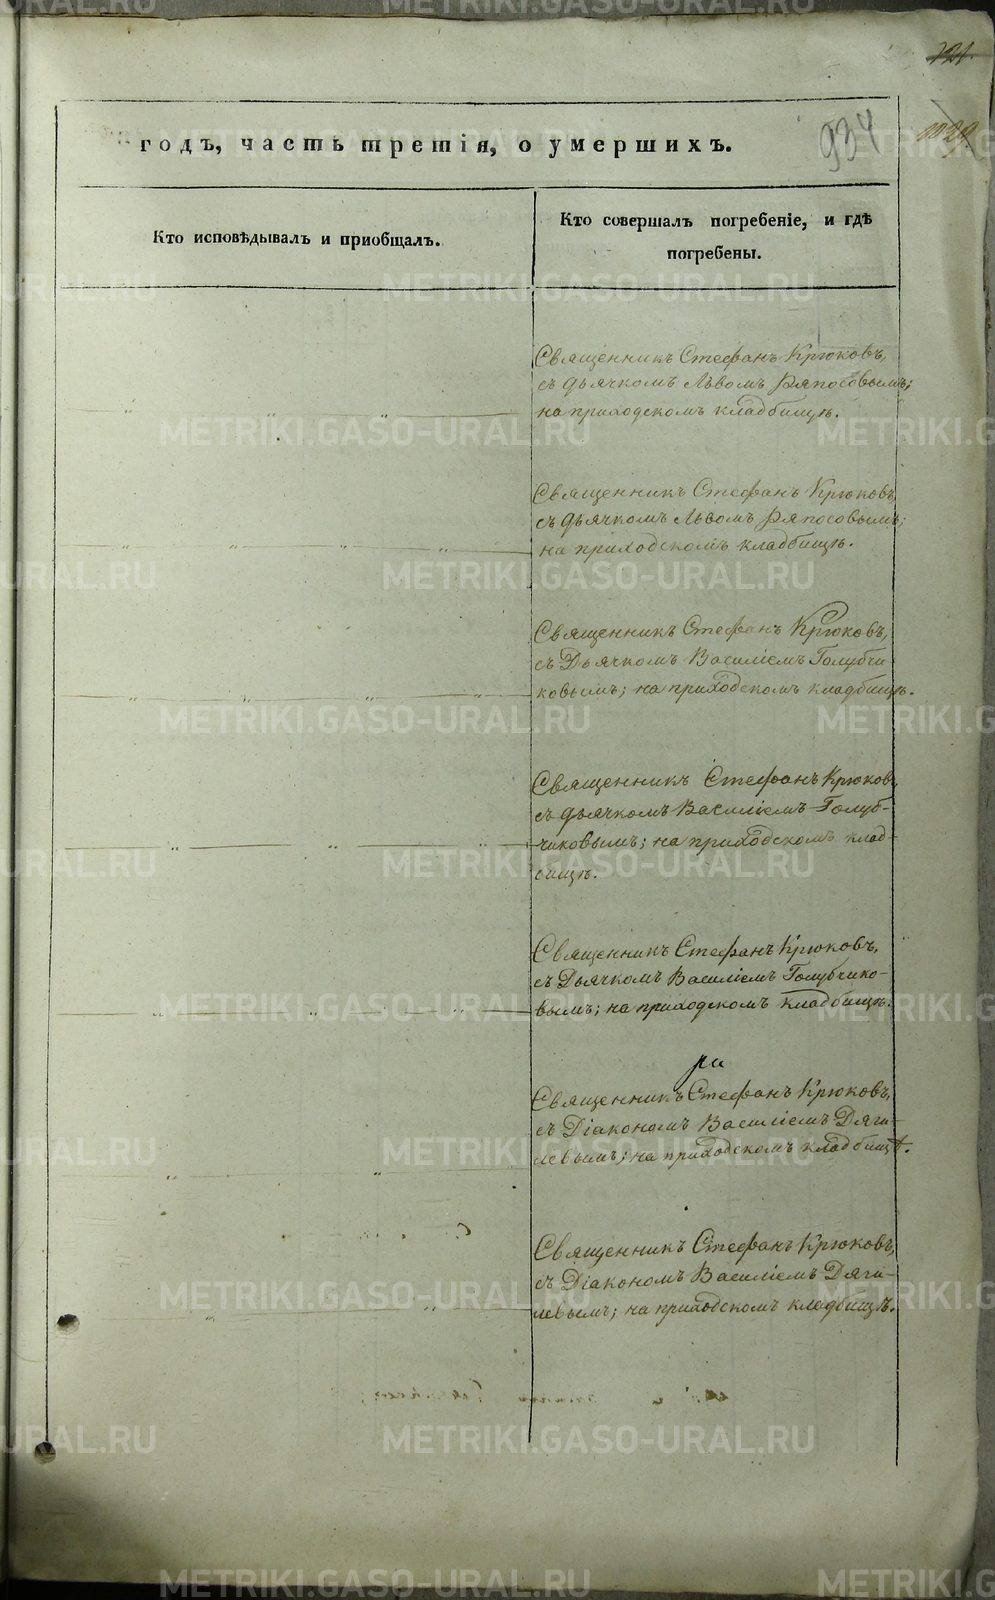 121.
1029.
934
годъ, часть третія, о умершихъ.
Кто исповѣдывалъ и приобщалъ.
Кто совершалъ погребеніе, и гдѣ
погребены.
Священникъ Стефанъ Крюковъ,
съ дьячкомъ Львомъ Ряпосовымъ;
на приходскомъ кладбищѣ.
Священникъ Стефанъ Крюковъ,
съ дьячкомъ Львомъ Ряпосовымъ;
на приходскомъ кладбищѣ.
Священникъ Стефанъ Крюковъ,
съ Дьячкомъ Василіемъ Голубчи
ковымъ; на приходскомъ кладбищѣ.
Священникъ Стефанъ Крюковъ,
съ дьячкомъ Василіемъ Голуб-
чиковымъ; на приходскомъ клад-
бищѣ.
Священникъ Стефанъ Крюковъ,
съ Дьячкомъ Василіемъ Голубчико-
вымъ; на приходскомъ кладбищѣ.
ра
Священникъ Стефанъ Крюковъ,
съ Діакономъ Василіемъ Дяги-
левымъ; на приходскомъ кладбищѣ.
Священникъ Стефанъ Крюковъ,
съ Діакономъ Василіемъ Дяги-
левымъ; на приходскомъ кладбищѣ.
METRIKI.GASO-URAL.RU